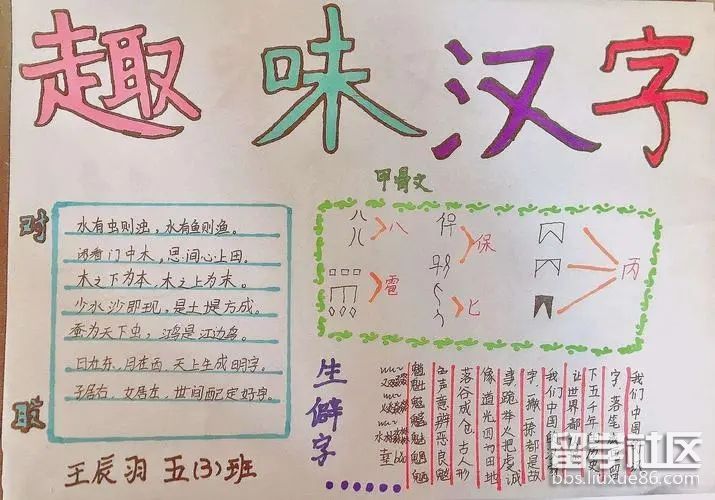 趣味汉字
对
水有虫则浊，水有鱼则渔。
闲看门中木，思间心上田。
木之下为本，木之上为末。
少水沙即现，是土堤方成。
蚕为天下虫，鸿是江边鸟。
日在东，月在西，天上生成明字。
子居右，女居左，世间配定好字。
王辰羽 五(3)班
甲骨文
八
保
雹
匕
丙
生僻字......
我们中国
字，落笔成
下五千年
让世界都
我们中国
字一撇一捺都是故
事跪举火把虔诚
像道光四方田地
落谷成仓古人形
色声意辨恶良魑
留学社区
bbs.liuxue86.com